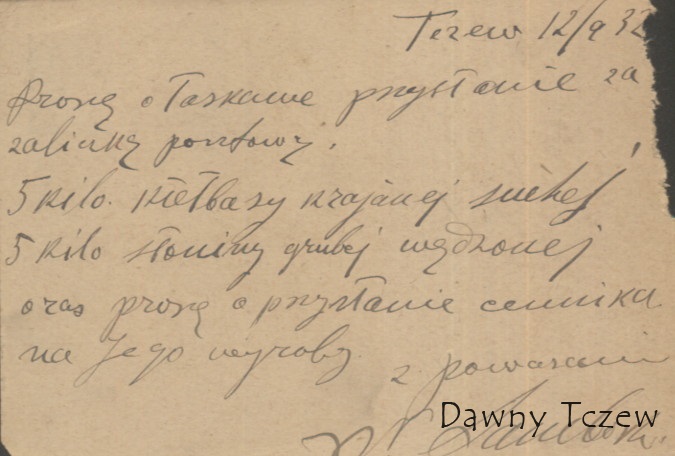 Tczew 12/9 32
Proszę o łaskawe przysłanie za
zaliczką pocztową.
5 kilo. kiełbasy krajanej suchej
5 kilo słoniny grubej wędzonej
oraz proszę o przysłanie cennika
na Jego wyroby.
z poważani
Dawny Tczew